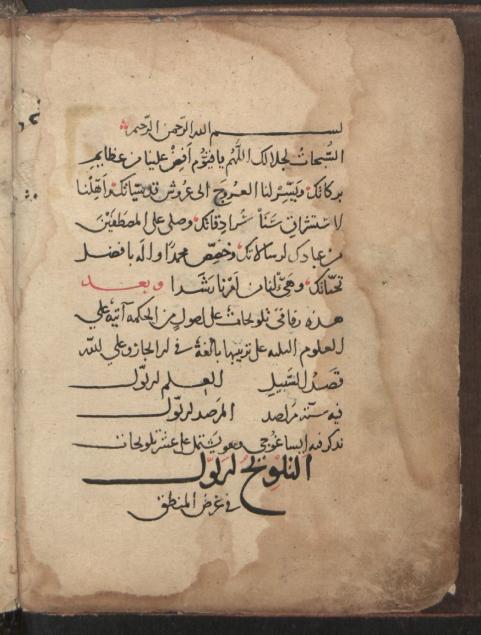 بسم الله الرحمن الرحيم
السبحات لجلالك اللهم يا قيوم أفض علينا من عظايم
بركاتك ويسر لنا العروج الى عروش قدسياتك وأهلنا
لاستشراق سنا سرادقاتك وصلى على المصطفين
من عبادك لرسالاتك وخصص محمدا وآله بافضل
تحياتك وهيئ لنا من أمرنا رشدا وبعد
هذه رفاقى تلويحات على اصول من الحكمه آتية على
العلوم الثلثه على ترتيبها بالغة في الايجاز وعلى الله
قصد السبيل العلم الاول
فيه ستة مراصد المرصد الاول
نذكر فيه ايساغوجي وهو يشتمل على عشر تلويحات
التلويح الاول
في غرض المنطق